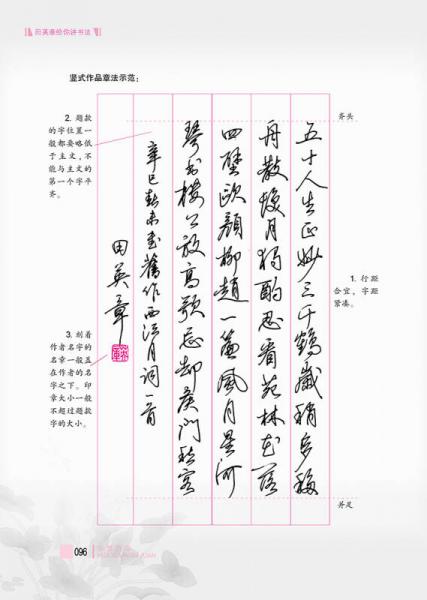 田英章给你讲书法
竖式作品章法示范:
齐头
五十人生正妙三千鹤歲稍多
舟散月独酌忍看花林花落
四壁欧颜柳赵一簾風月星河
琴书楼公放高歌忘却侯門客
辛巳秋末書舊作西江月詞一首
田英章
1. 行距
合宜,字距
紧凑。
2. 题款
的字位置一
般都要略低
于主文,不
能与主文的
第一个字平
齐。
3. 刻着
作者名字的
名章一般盖
在作者的名
字之下。印
章大小一般
不超过题款
字的大小。
并足
096